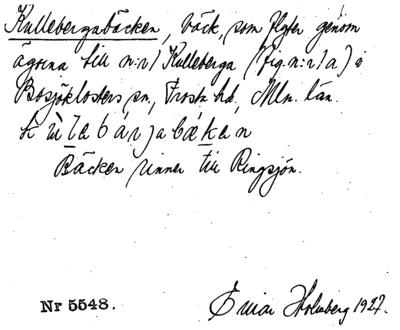 Kullebergabäcken, bäck, som flyter genom
ägorna till n:r 1 Kulleberga (fig. n:r 1a) i
Bosjöklosters sn., Frosta hd, Mlm. län.
kùlabárjabäkan
Bäcken rinner till Ringsjön.
Nr 5548. Einar Holmberg 1927.